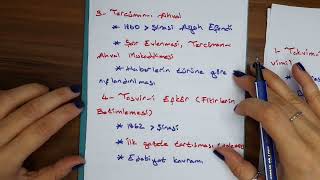 3- Tercüman-ı Ahval
* 1860 > Şinasi Agah Efendi
* Şair Evlenmesi, Tercüman-ı
Ahval Mukaddimesi
* Haberlerin türüne göre
ırlandırılması
4- Tasvir-i Efkâr (Fikirlerin
Betimlemesi)
* 1862 > Şinasi
* İlk gazete tartışması
* Edebiyat kavramı
1- Takvim-i